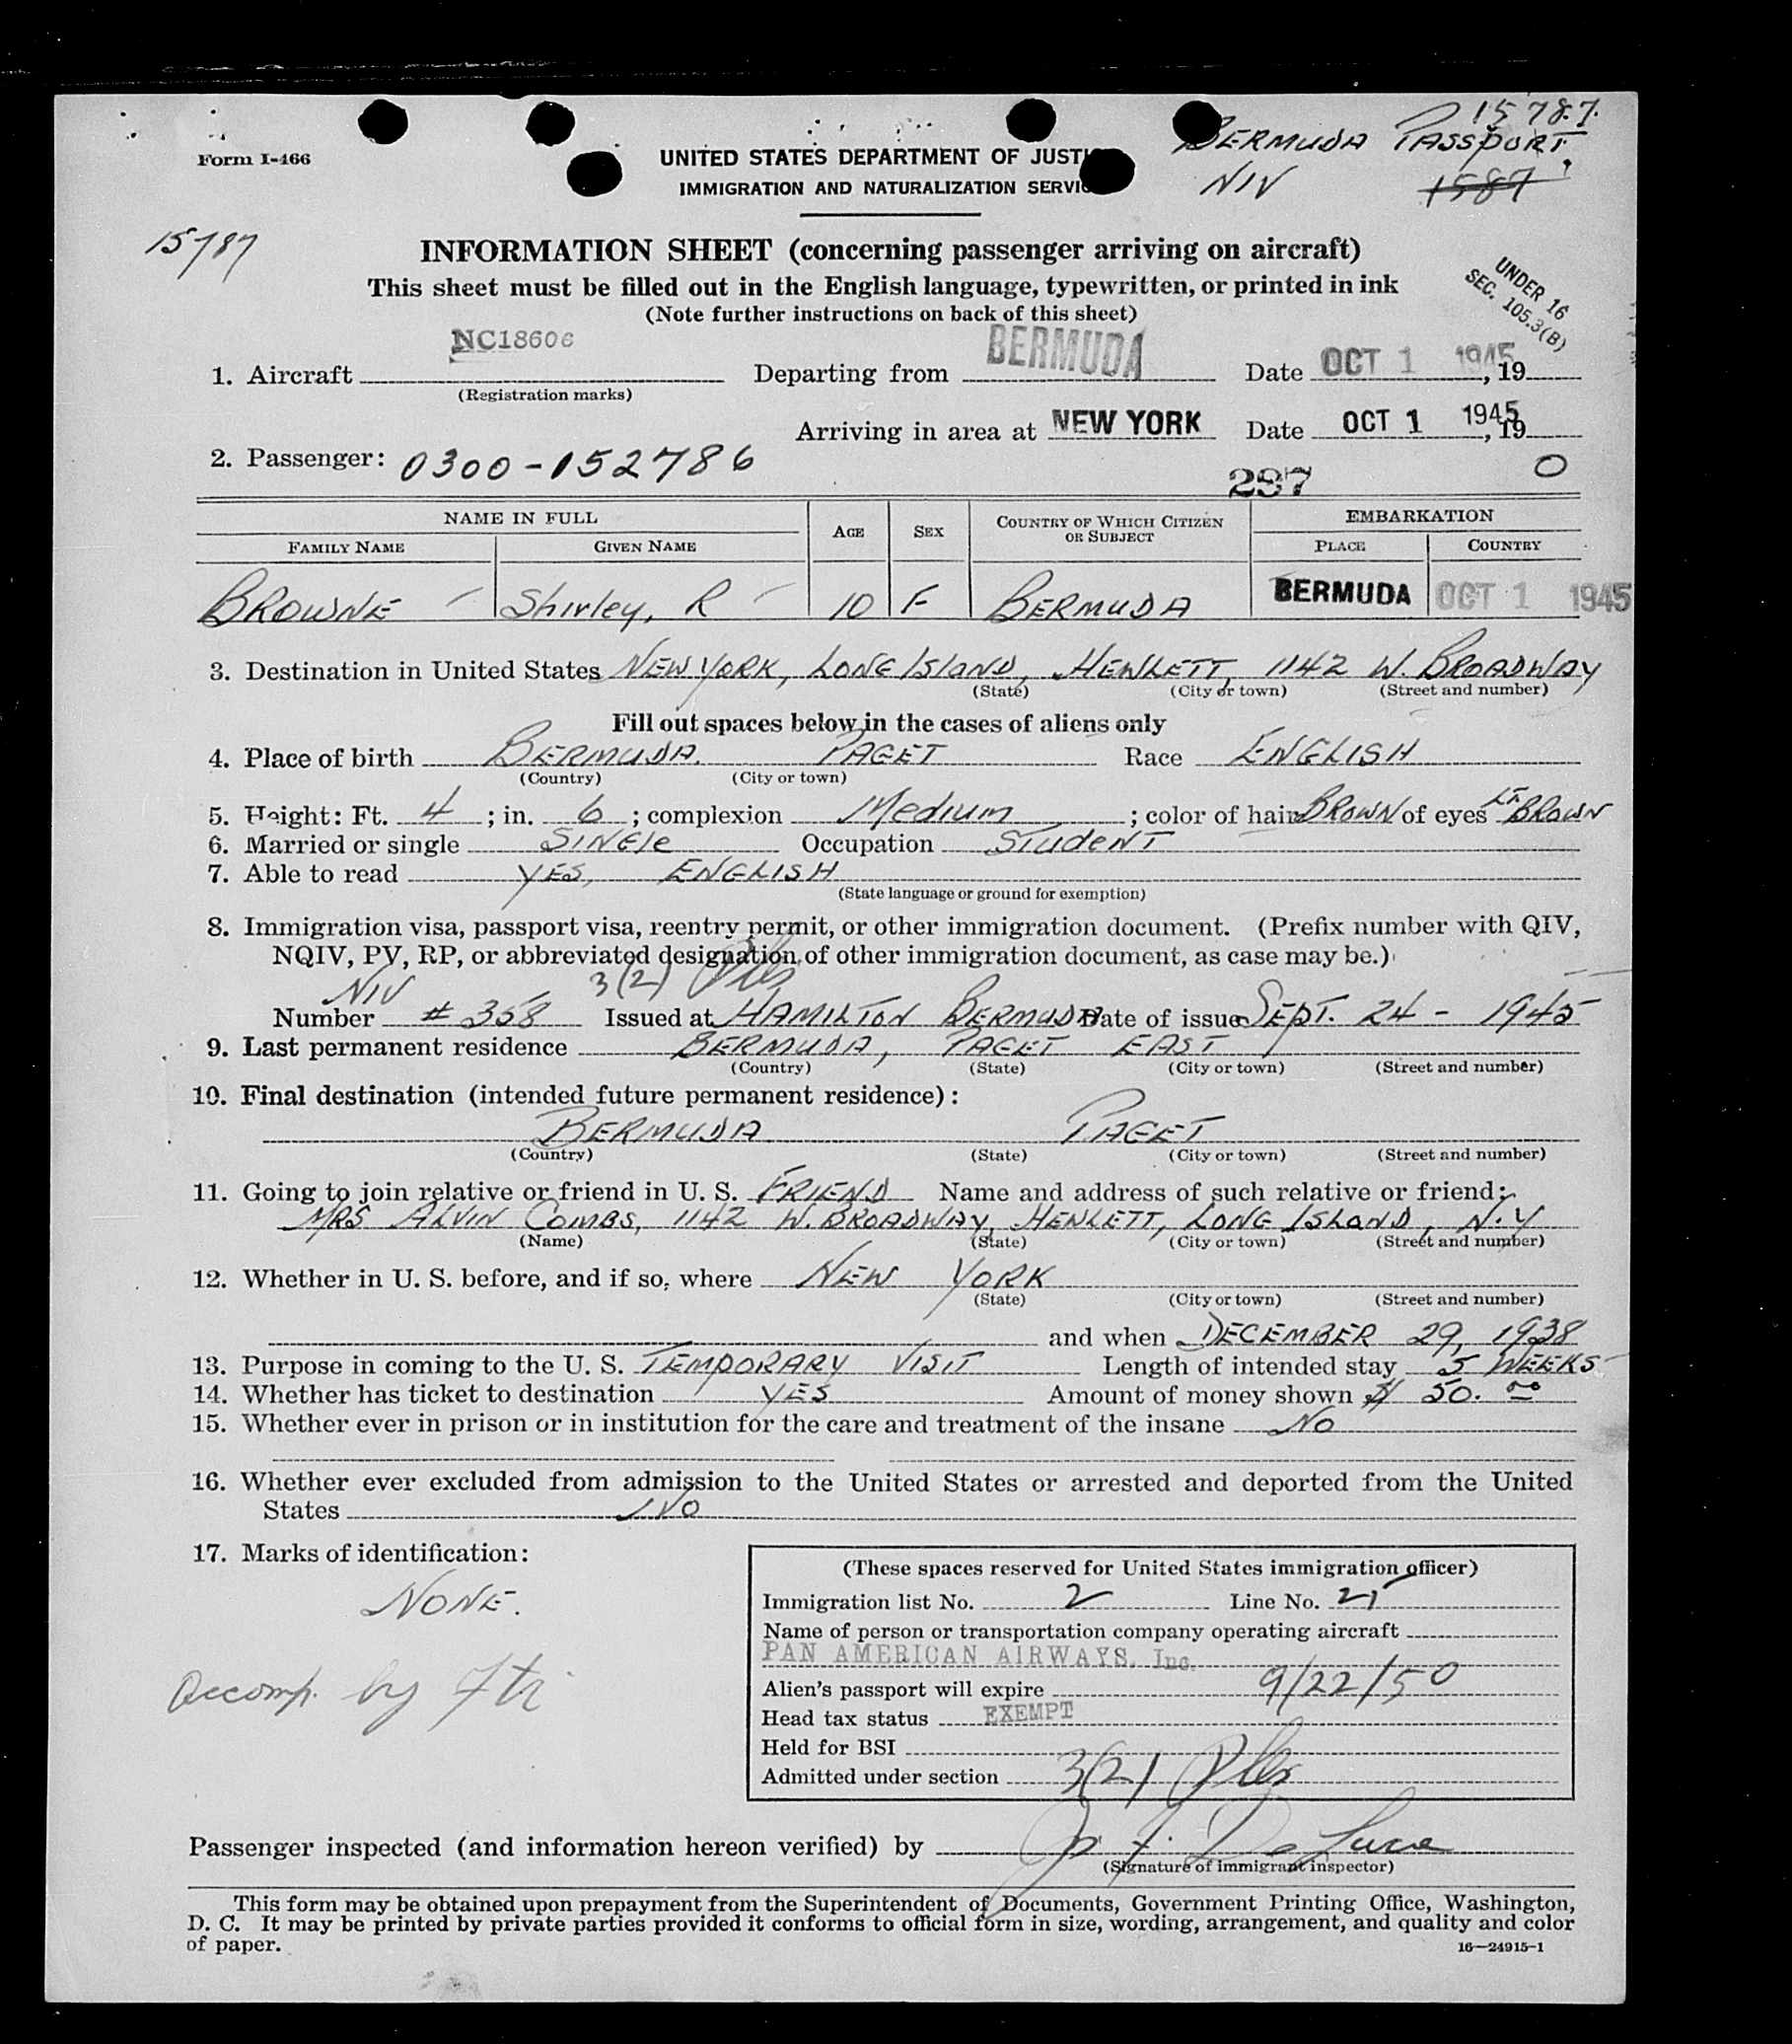 15787.
BERMUDA PASSPORT
NIV 1587
Form I-466
UNITED STATES DEPARTMENT OF JUSTI
IMMIGRATION AND NATURALIZATION SERVIC
15787
INFORMATION SHEET (concerning passenger arriving on aircraft)
This sheet must be filled out in the English language, typewritten, or printed in ink
(Note further instructions on back of this sheet)
UNDER 16
SEC. 105.3(B)
1. Aircraft NC18606 Departing from BERMUDA Date OCT 1 1945, 19
(Registration marks)
Arriving in area at NEW YORK Date OCT 1 1945, 19
2. Passenger: 0300-152786
297 0
NAME IN FULL AGE SEX COUNTRY OF WHICH CITIZEN OR SUBJECT EMBARKATION
FAMILY NAME GIVEN NAME PLACE COUNTRY
BROWNE Shirley, R 10 F BERMUDA BERMUDA OCT 1 1945
3. Destination in United States NEW YORK, LONG ISLAND, HEWLETT, 1142 W. BROADWAY
(State) (City or town) (Street and number)
Fill out spaces below in the cases of aliens only
4. Place of birth BERMUDA. PAGET Race ENGLISH
(Country) (City or town)
5. Height: Ft. 4; in. 6; complexion Medium; color of hair BROWN of eyes LT BROWN
6. Married or single SINGle Occupation STudeNT
7. Able to read YES, ENGLISH
(State language or ground for exemption)
8. Immigration visa, passport visa, reentry permit, or other immigration document. (Prefix number with QIV,
NQIV, PV, RP, or abbreviated designation of other immigration document, as case may be.)
NIV 3(2)
Number # 358 Issued at HAMILTON BERMUDA Date of issue SEPT. 24 - 1945
9. Last permanent residence BERMUDA, PAGET EAST
(Country) (State) (City or town) (Street and number)
10. Final destination (intended future permanent residence):
BERMUDA PAGET
(Country) (State) (City or town) (Street and number)
11. Going to join relative or friend in U. S. FRIEND Name and address of such relative or friend:
MRS ALVIN COMBS, 1142 W. BROADWAY, HEWLETT, LONG ISLAND, N.Y
(Name) (State) (City or town) (Street and number)
12. Whether in U. S. before, and if so, where NEW YORK
(State) (City or town) (Street and number)
and when DECEMBER 29, 1938
13. Purpose in coming to the U. S. TEMPORARY VISIT Length of intended stay 5 WEEKS
14. Whether has ticket to destination YES Amount of money shown $ 50.00
15. Whether ever in prison or in institution for the care and treatment of the insane NO
16. Whether ever excluded from admission to the United States or arrested and deported from the United
States NO
17. Marks of identification:
NONE.
accomp. by
(These spaces reserved for United States immigration officer)
Immigration list No. 2 Line No. 21
Name of person or transportation company operating aircraft
PAN AMERICAN AIRWAYS, Inc.
Alien's passport will expire 9/22/50
Head tax status EXEMPT
Held for BSI
Admitted under section 3(2)
Passenger inspected (and information hereon verified) by De Luca
(Signature of immigrant inspector)
This form may be obtained upon prepayment from the Superintendent of Documents, Government Printing Office, Washington,
D. C. It may be printed by private parties provided it conforms to official form in size, wording, arrangement, and quality and color
of paper.
16—24915-1